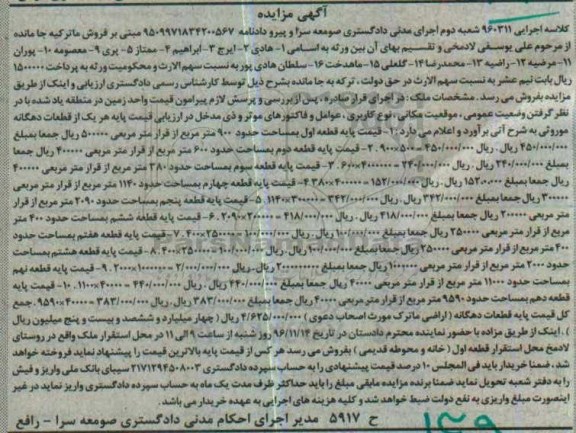 آگهی مزایده
کلاسه اجرایی ۹۶۰۳۱۱ شعبه دوم اجرای مدنی دادگستری صومعه سرا و پیرو دادنامه ۹۵۰۹۹۷۱۸۳۴۲۰۰۵۶۷ مبنی بر فروش ماترکیه جا مانده
از مرحوم علی یوسفی لادمخی و تقسیم بهای آن بین ورثه به اسامی ۱- هادی ۲- ایرج ۳- ابراهیم ۴- ممتاز ۵- پری ۹- معصومه ۱۰- پوران
۱۱- مرضیه ۱۲- راضیه ۱۳- محمدرضا ۱۴- گلعلی ۱۵- ماهدخت ۱۶- سلطان هادی پور به نسبت سهم الارث و محکومیت ورثه به پرداخت ۱۵۰۰۰۰۰
ریال بابت نیم عشر به نسبت سهم الارث در حق دولت، ترکه به جا مانده بشرح ذیل توسط کارشناس رسمی دادگستری ارزیابی و اینک از طریق
مزایده بفروش می رسد. مشخصات ملک: در اجرای قرار صادره، پس از بررسی و پرسش لازم پیرامون قیمت واحد زمین در منطقه یاد شده با در
نظر گرفتن وضعیت عمومی، موقعیت مکانی، نوع کاربری، عوامل و فاکتورهای موثر و ذی مدخل در ارزیابی قیمت پایه هر یک از قطعات دهگانه
موروثی به شرح آتی برآورد و اعلام می دارد: ۱- قیمت پایه قطعه اول بمساحت حدود ۹۰۰ متر مربع از قرار متر مربعی ۵۰۰۰۰۰ ریال جمعا بمبلغ
۴۵۰/۰۰۰/۰۰۰ ریال. ریال ۴۵۰/۰۰۰/۰۰۰=۵۰۰۰۰۰×۹۰۰ ۲- قیمت پایه قطعه دوم بمساحت حدود ۶۰۰ متر مربع از قرار متر مربعی ۴۰۰۰۰۰ ریال جمعا
بمبلغ ۲۴۰/۰۰۰/۰۰۰ ریال. ریال ۲۴۰/۰۰۰/۰۰۰=۴۰۰۰۰۰×۶۰۰ ۳- قیمت پایه قطعه سوم بمساحت حدود ۳۸۰ متر مربع از قرار متر مربعی ۴۰۰۰۰۰
ریال جمعا بمبلغ ۱۵۲/۰۰۰/۰۰۰ ریال. ریال ۱۵۲/۰۰۰/۰۰۰=۴۰۰۰۰۰×۳۸۰ ۴- قیمت پایه قطعه چهارم بمساحت حدود ۱۱۴۰ متر مربع از قرار متر مربعی
۳۰۰۰۰۰ ریال جمعا بمبلغ ۳۴۲/۰۰۰/۰۰۰ ریال. ریال ۳۴۲/۰۰۰/۰۰۰=۳۰۰۰۰۰×۱۱۴۰ ۵- قیمت پایه قطعه پنجم بمساحت حدود ۲۰۹۰ متر مربع از قرار
متر مربعی ۲۰۰۰۰۰ ریال جمعا بمبلغ ۴۱۸/۰۰۰/۰۰۰ ریال. ریال ۴۱۸/۰۰۰/۰۰۰=۲۰۰۰۰۰×۲۰۹۰ ۶- قیمت پایه قطعه ششم بمساحت حدود ۴۰۰ متر
مربع از قرار متر مربعی ۲۵۰۰۰۰ ریال جمعا بمبلغ ۱۰۰/۰۰۰/۰۰۰ ریال. ریال ۱۰۰/۰۰۰/۰۰۰=۲۵۰۰۰۰×۴۰۰ ۷- قیمت پایه قطعه هفتم بمساحت حدود
۴۰۰ متر مربع از قرار متر مربعی ۲۵۰۰۰۰ ریال جمعا بمبلغ ۱۰۰/۰۰۰/۰۰۰ ریال. ریال ۱۰۰/۰۰۰/۰۰۰=۲۵۰۰۰۰×۴۰۰ ۸- قیمت پایه قطعه هشتم بمساحت
حدود ۲۰۰۰ متر مربع از قرار متر مربعی ریال جمعا بمبلغ ریال. ریال قیمت پایه قطعه نهم
بمساحت حدود ۱۱۰۰۰ متر مربع از قرار متر مربعی ۴۰۰۰۰ ریال جمعا بمبلغ ۴۴۰/۰۰۰/۰۰۰ ریال. ریال ۴۴۰/۰۰۰/۰۰۰ ۱۰- قیمت پایه
قطعه دهم بمساحت حدود ۹۵۹۰ متر مربع از قرار متر مربعی ۴۰۰۰۰ ریال جمعا بمبلغ ۳۸۳/۰۰۰/۰۰۰ ریال. ریال ۳۸۳/۰۰۰/۰۰۰=۴۰۰۰۰×۹۵۹۰. جمع
کل قیمت پایه قطعات دهگانه (اراضی ماترک مورث اصحاب دعوی) ۴/۶۲۵/۰۰۰/۰۰۰ ریال (چهار میلیارد و ششصد و بیست و پنج میلیون ریال
). اینک از طریق مزاده با حضور نماینده محترم دادستان در تاریخ ۹۶/۱۱/۱۴ روز شنبه از ساعت ۹ الی ۱۱ در محل استقرار ملک واقع در روستای
لادمخ محل استقرار قطعه اول (خانه و محوطه قدیمی) بفروش می رسد هر کس از قیمت پایه بالاترین قیمت را پیشنهاد نماید فروخته خواهد
شد، ضمنا خریدار باید فی المجلس ۱۰ درصد قیمت پیشنهادی را به حساب سپرده دادگستری ۲۱۷۱۲۹۴۵۰۸۰۰۳ سیبای بانک ملی واریز و فیش
را به دفتر شعبه تحویل نماید ضمنا برنده مزایده مابقی مبلغ را باید حداکثر ظرف مدت یک ماه به حساب سپرده دادگستری واریز نماید در غیر
اینصورت مبلغ واریزی به نفع دولت ضبط خواهد شد و کلیه هزینه های اجرایی به عهده خریدار می باشد.
ح ۵۹۱۷ مدیر اجرای احکام مدنی دادگستری صومعه سرا - رافع